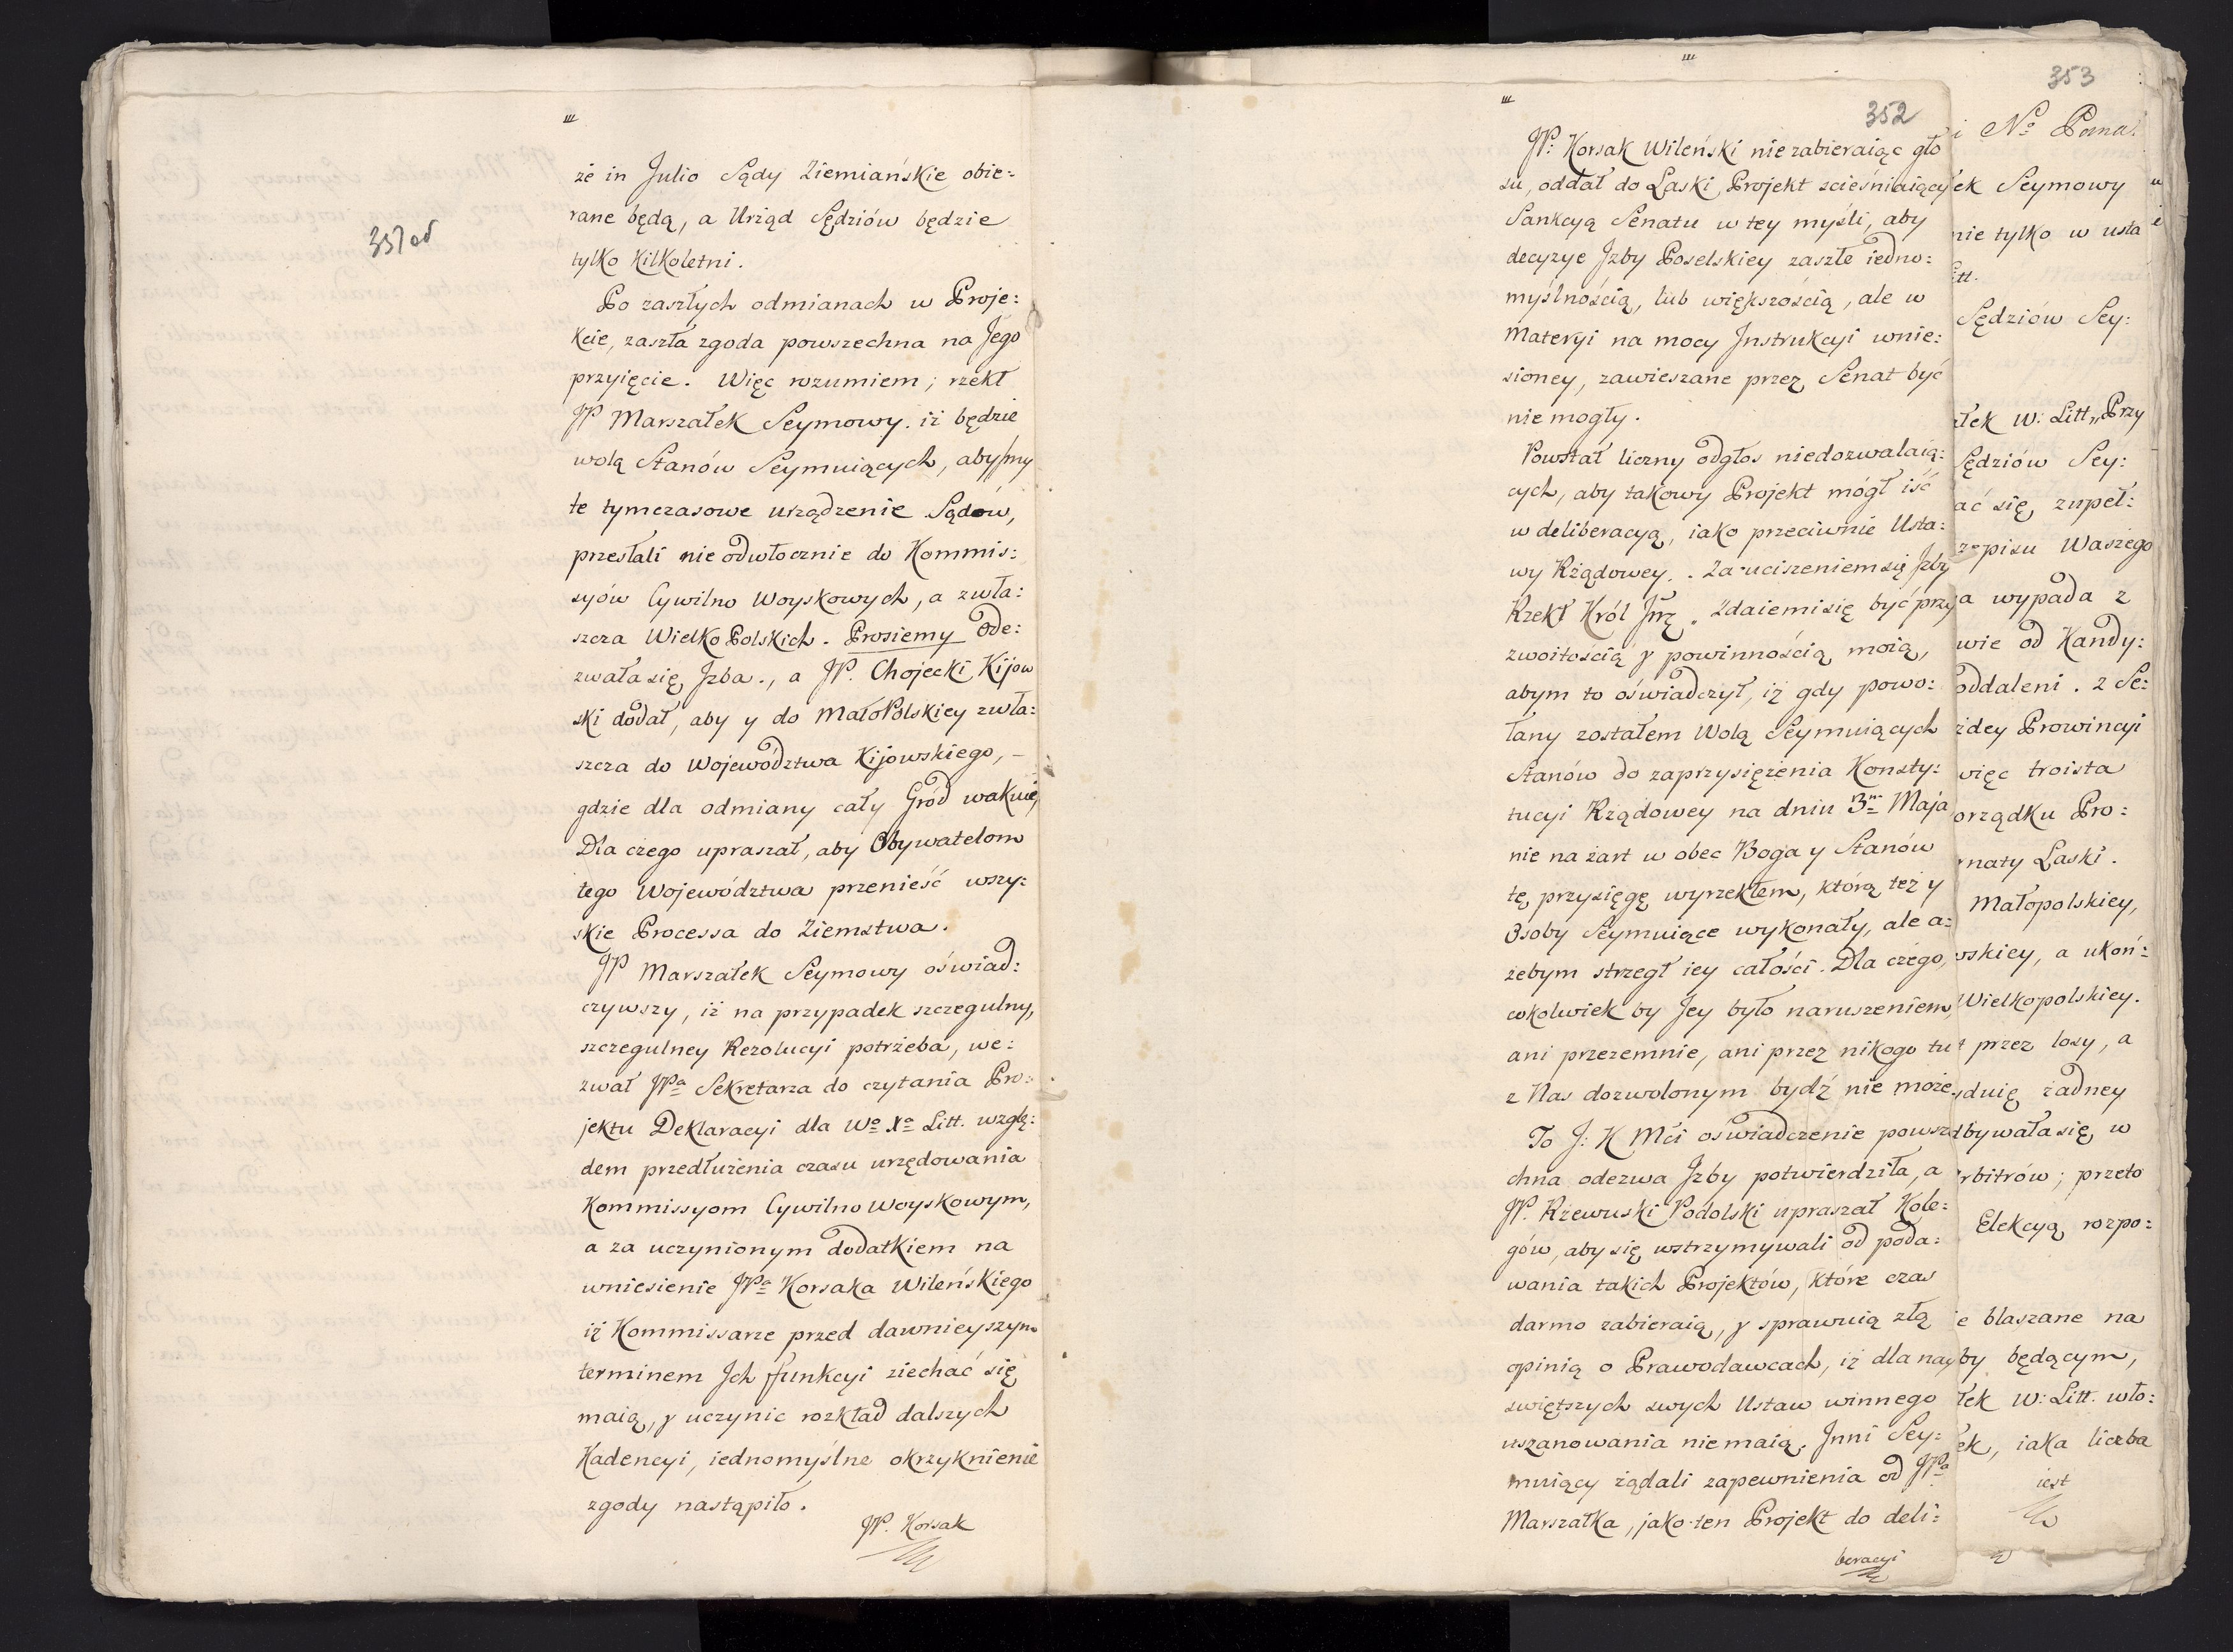 357od
że in Julio Sądy Ziemiańskie obie:
rane będą, a Urząd Sędziów będzie
tylko kilkoletni.
Po zaszłych odmianach w Proje:
kcie, zaszła zgoda powszechna na Jego
przyięcie. Więc rozumiem; rzekł
JP Marszałek Seymowy. iż będzie
wolą Stanów Seymuiących, abyśmy
te tymczasowe urządzenie Sądów,
przesłali nieodwłocznie do Kommis:
syów Cywilno Woyskowych, a zwła:
szcza WielkoPolskich. Prosiemy Ode:
zwała się Jzba., a JP. Chojecki Kijow
ski dodał, aby y do MałoPolskiey zwła:
szcza do Województwa Kijowskiego, –
gdzie dla odmiany cały Gród wakuie,
Dla czego upraszał, aby Obywatelom
tego Województwa przenieść wszy:
skie Processa do Ziemstwa.
JP Marszałek Seymowy oświad:
czywszy, iż na przypadek szczegulny,
szczegulney Rezolucyi potrzeba, we:
zwał JPa Sekretarza do czytania Pro:
jektu Deklaracyi dla Wo Xo Litt. wzglę:
dem przedłużenia czasu urzędowania
Kommissyom Cywilno Woyskowym,
a za uczynionym dodatkiem na
wniesienie JPa Korsaka Wileńskiego
iż Kommissarze przed dawnieyszym
terminem Jch funkcyi ziechać się
maią, y uczynic rozkład dalszych
Kadencyi, iednomyślne okrzyknienie
zgody nastąpiło.
JP. Korsak
352
JP: Korsak Wileński nie zabieraiąc gło
su, oddał do Laski Projekt scieśniaiący
Sankcyą Senatu w tey myśli, aby
decyzye Jzby Poselskiey zaszłe iedno:
myślnością, lub większością, ale w
Materyi na mocy Jnstrukcyi wnie:
sioney, zawieszane przez Senat być
nie mogły.
Powstał liczny odgłos niedozwalaią:
cych, aby takowy Projekt mógł iść
w deliberacyą, iako przeciwnie Usta:
wy Rządowey. Za uciszeniem się Jzby
Rzekł Król Jmę „ Zdaiemi się być przy
zwoitością y powinnością moią,
abym to oświadczył, iż gdy powo:
łany zostałem Wolą Seymuiących
Stanów do zaprzysiężenia Konsty:
tucyi Rządowey na dniu 3m Maja
nie na żart w obec Boga y Stanów
tę przysięgę wyrzekłem, którą też y
Osoby Seymuiące wykonały, ale a:
żebym strzegł iey całości. Dla czego,
cokolwiek by Jey było naruszeniem,
ani przezemnie, ani przez nikogo tu
z Nas dozwolonym bydź nie może.
To J: K Mći oświadczenie powsze
chna odezwa Jzby potwierdziła, a
JP. Rzewuski Podolski upraszał Kole:
gów, aby się wstrzymywali od poda:
wania takich Projektów, które czas
darmo zabieraią, y sprawuią złą
opinią o Prawodawcach, iż dla nay
świętszych swych Ustaw winnego
uszanowania nie maią. Jnni Sey:
muiący żądali zapewnienia od JPa
Marszałka, jako ten Projekt do deli:
beracyi
353
i No Poma:
ek Seymowy
nie tylko w usta
tt.
Sędziów Sey:
łek W: Litt„ Przy
Sędziów Sey:
ać się zupeł:
zepisu Waszego
a wypada z
wie od Kandy:
oddaleni. z Se:
żdey Prowincyi
więc troista
orządku Pro:
rnaty Laski.
Małopolskiey,
wskiey, a ukoń:
Wielkopolskiey.
t przez losy, a
duię żadney
dbywała się w
rbitrów; przeto
Elekcyą rozpo:
e blaszane na
by będącym,
łek W: Litt. wło:
ek, iaka liczba
iest